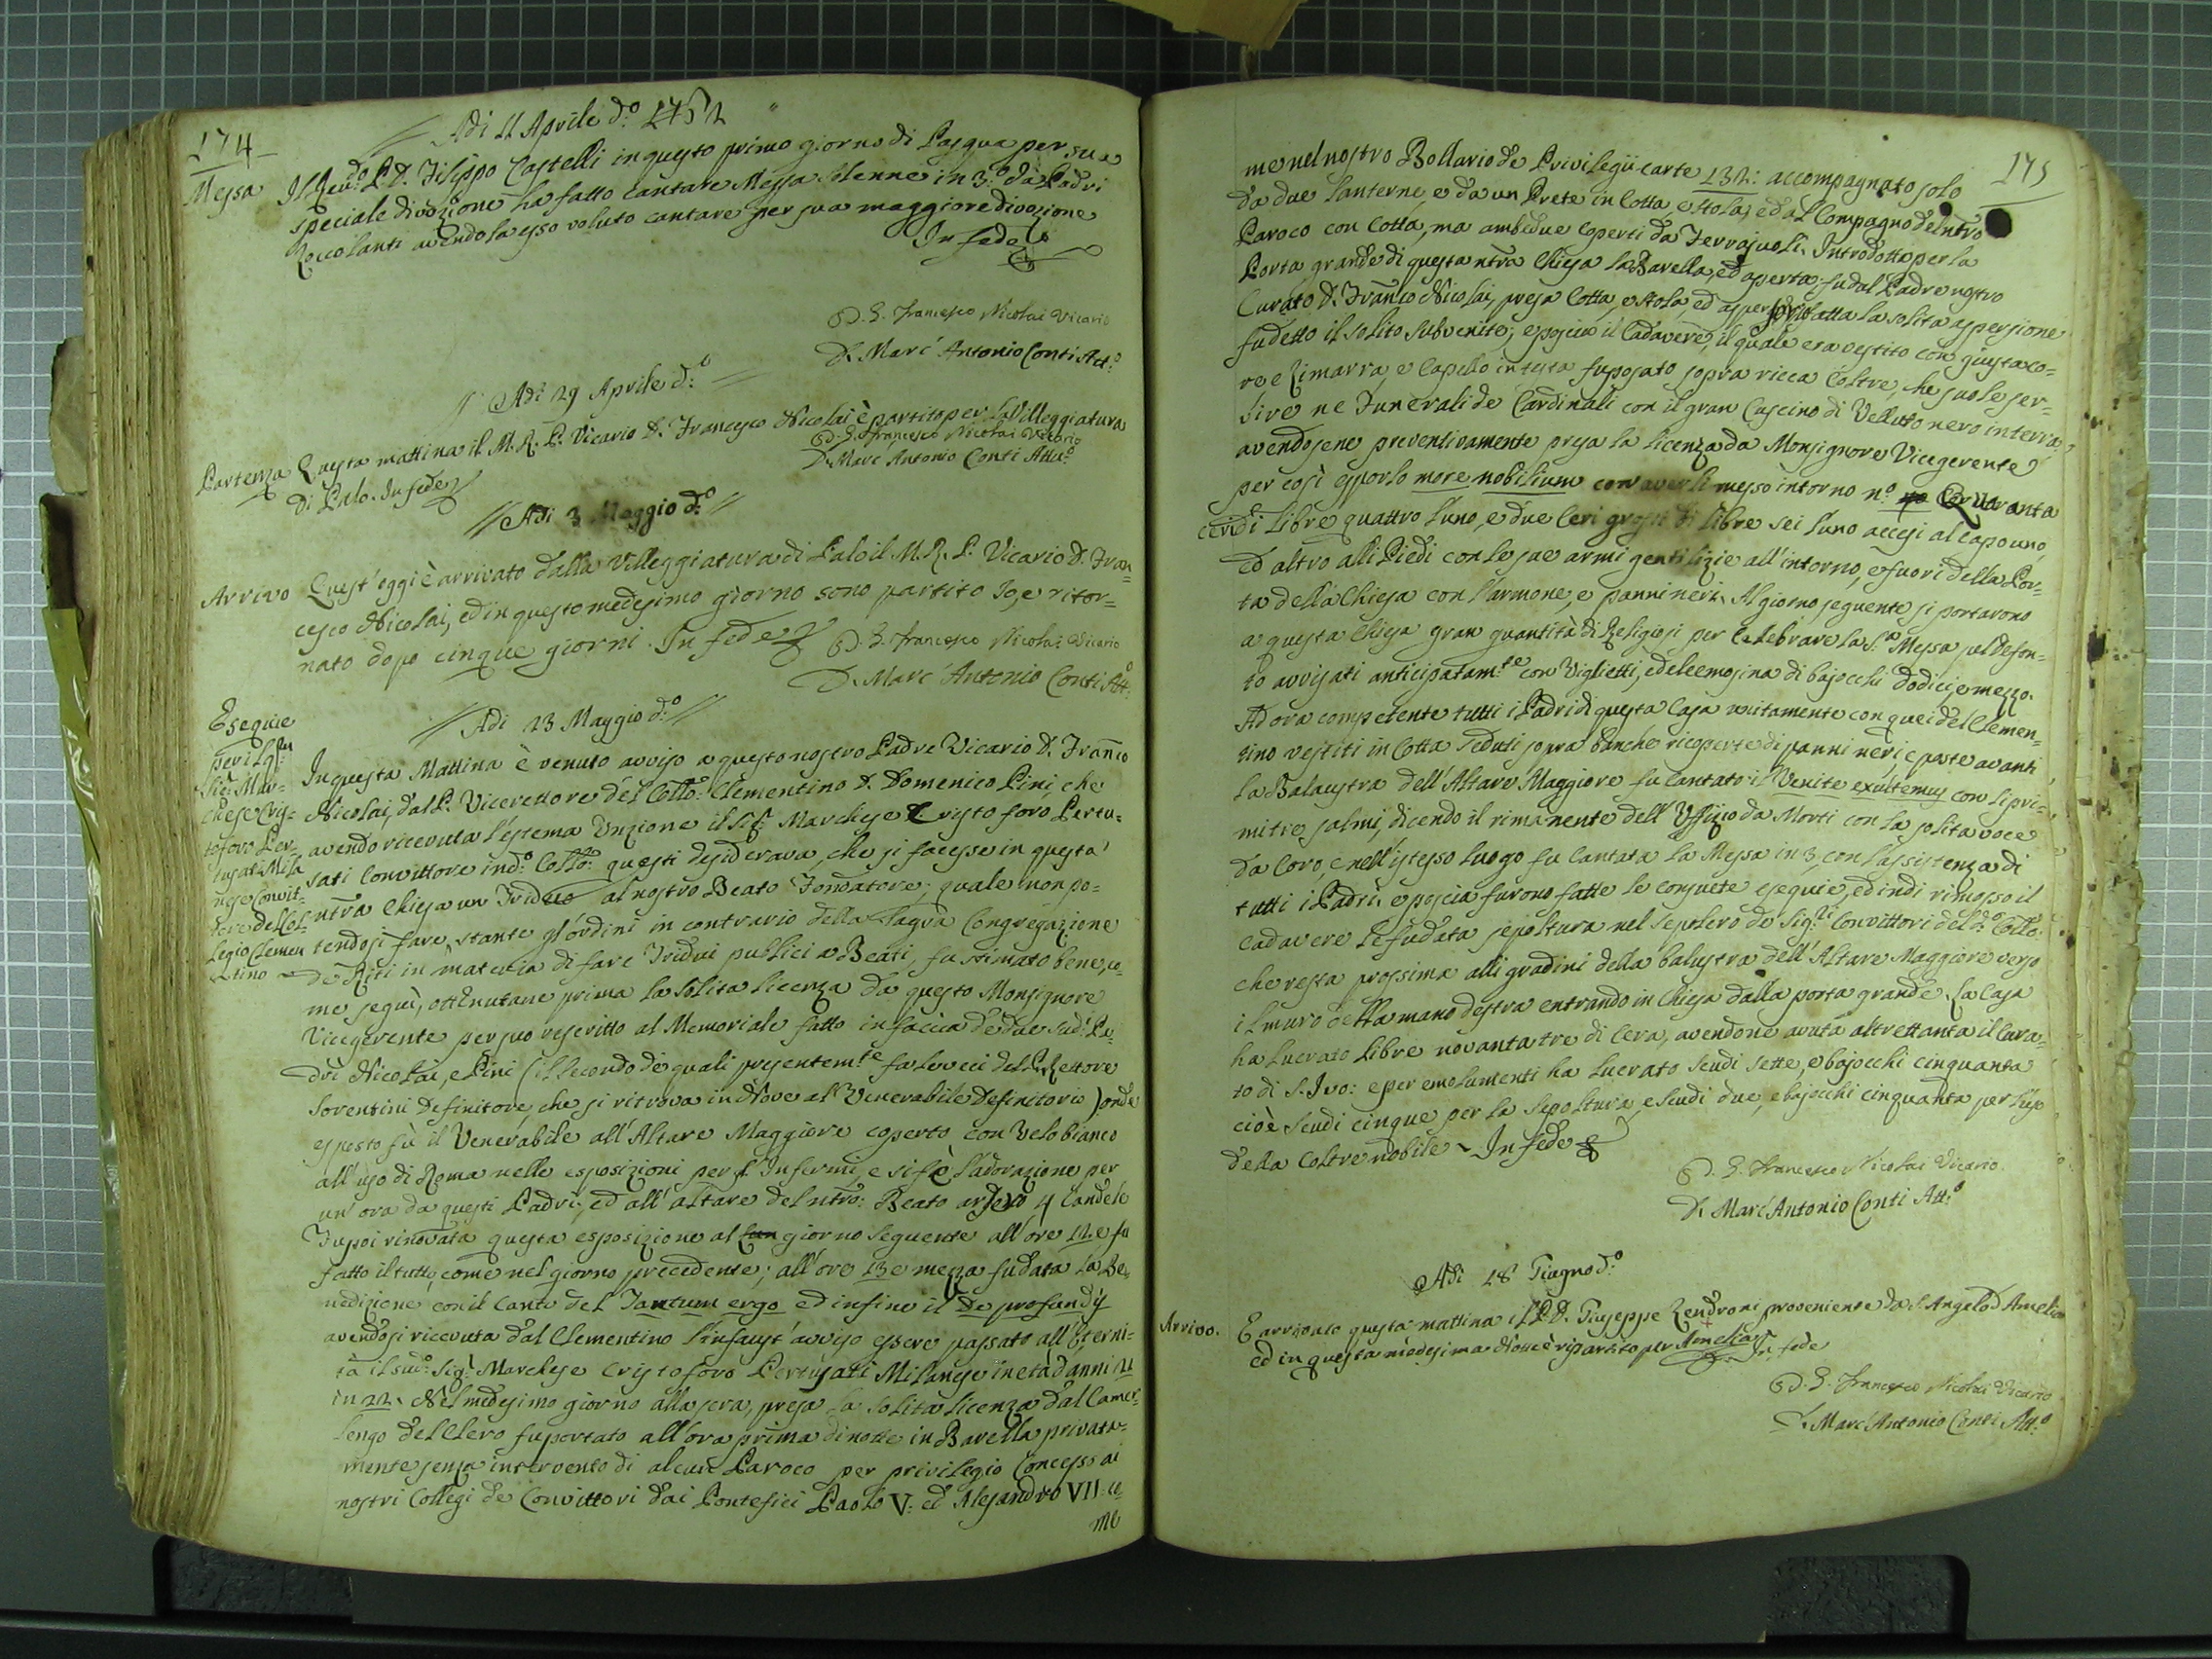 174
// Adi 11 Aprile d:º 1752 //
Messa Il Reu:º P. D. Filippo Castelli in questo primo giorno di Pasqua per sua
speciale divozione ha fatto cantare Messa solenne in 3.º da Padri
Zoccolanti avendola esso voluto cantare per sua maggiore divozione
In fede
D. G. Francesco Nicolai Vicario
D. Marc' Antonio Conti Att:º
// Adi 29 Aprile d:º //
Partenza Questa mattina il M. R. P. Vicario D. Francesco Nicolai è partito per la Villeggiatura
di Palo. In fede
D. G. Francesco Nicolai Vicario
D. Marc Antonio Conti Attu:º
// Adi 3 Maggio d:º //
Arrivo Quest'oggi è arrivato dalla Villeggiatura di Palo il M. R. P. Vicario D. Fran=
cesco Nicolai, ed in questo medesimo giorno sono partito Io, e ritor=
nato dopo cinque giorni. In fede
D. G. Francesco Nicolai Vicario
D. Marc' Antonio Conti Att:º
// Adi 23 Maggio d:º //
Esequie
per il
Sig: Mar=
chese Cris=
toforo Per=
tusati Mila
nese Convit=
tore del Col=
legio Clemen
tino
In questa Mattina è venuto avviso a questo nostro Padre Vicario D. Franco
Nicolai, dal P. Vicerettore del Collo: Clementino D. Domenico Pini, che
avendo ricevuta l'estema Unzione il Sig: Marchese Cristoforo Pertu=
sati Convittore in d:º Collo: questi desiderava, che si facesse in questa
ntra Chiesa un Triduo al nostro Beato Fondatore; quale non po=
tendosi fare, stante gl'ordini in contrario della Sagra Congregazione
de Riti in materia di fare Tridui publici a Beati, fu stimato bene, co=
me seguì, ottenutane prima la solita licenza da questo Monsignore
Vicegerente per suo rescritto al Memoriale fatto in faccia de due sud: Pa=
dri Nicolai, e Pini (il secondo de quali presentem:te fa le veci del P. Rettore
Sorentini Definitore, che si ritrova in dove al Venerabile Definitorio) onde
esposto fù il Venerabile all'Altare Maggiore coperto con Velo bianco
all'uso di Roma nelle esposizioni per gl'Infermi, e si fè l'adorazione per
un'ora da questi Padri; ed all'altare del ntro: Beato arsero 4 Candele
Fu poi rinovata questa esposizione al giorno seguente all'ore 12. e fu
fatto il tutto come nel giorno precedente; all'ore 13 e mezza fu data la Be=
nedizione con il Canto del Tantum ergo ed infine il De profundis
avendosi ricevuta dal Clementino l'infaust'avviso essere passato all'Eterni=
tà il sud:º Sig: Marchese Cristoforo Pertusati Milanese in età d'anni 21
in 22. Nel medesimo giorno alla sera, presa la solita licenza dal Camer=
lengo del Clero fu portato all'ora prima di notte in Barella privata=
mente senza intervento di alcun Paroco per privilegio Concesso ai
nostri Collegi de Convittori dai Pontefici Paolo V: ed Alesandro VII: co=
me
175
me nel nostro Bollario de Privilegii carte 132: accompagnato solo
da due lanterne, e da un Prete in Cotta, e stola, ed al Compagno del ntro
Paroco con Cotta, ma ambedue coperti da Ferrajuoli. Introdotta per la
Porta grande di questa ntra Chiesa la Barella, ed aperta, fu dal Padre nostro
Curato D. Franco Nicolai, presa Cotta, e stola, ed fatta la solita aspersione
fu detto il solito Subvenite, e poscia il Cadavere, il quale era vestito con giustaco=
re e Zimarra, e Capello in testa fu posato sopra ricca Coltre, che suole ser=
vire ne Funerali de Cardinali con il gran Cuscino di Velluto nero in terra
avendosene preventivamente presa la licenza da Monsignore Vicegerente
per così esporlo more nobilium con averli messo intorno nº Quaranta
ceri di libre quattro l'uno, e due Ceri grossi di libre sei l'uno accesi al capo uno
ed altro alli Piedi con le sue armi gentilizie all'intorno, e fuori della Por=
ta della Chiesa con l'armone, e panni neri. Al giorno seguente si portarono
a questa Chiesa gran quantità di Religiosi per Celebrare la S:ª Messa pel defon=
to avvisati anticipatam:te con Viglietti, ed elemosina di bajocchi dodici, e mezzo.
Ad ora competente tutti i Padri di questa Casa unitamente con quei del Clemen=
tino vestiti in Cotta seduti sopra banche ricoperte di panni neri, e poste avanti
la Balaustra dell'Altare Maggiore fu Cantato il Venite exultemus con li pri=
mi tre salmi, dicendo il rimanente dell'Uffizio da Morti con la solita voce
da Coro, e nell'istesso luogo fu Cantata la Messa in 3, con l'assistenza di
tutti i Padri. e poscia furono fatte le consuete esequie, ed indi rimosso il
cadavere le fu data sepoltura nel sepolcro de Sig:ri Convittori del d:º Collo:
che resta prossima alli gradini della balustra dell'Altare Maggiore verso
il muro della mano destra entrando in Chiesa dalla porta grande. La Casa
ha lucrato libre novanta tre di Cera, avendone avuta altrettanta il Cura=
to di S. Ivo: e per emolumenti ha lucrato scudi sette, e bajocchi cinquanta
cioè scudi cinque per la sepoltura, e scudi due, e bajocchi cinquanta per l'uso
della Coltre nobile - In fede
D. G. Francesco Nicolai Vicario.
D. Marc'Antonio Conti Att:º
Adi 18 Giugno d:º
Arrivo. E arrivato questa mattina il P. D. Giuseppe Zendroni proveniente da S. Angelo d'Amelia
ed in questa medesima è ripartito per Amelia. In fede
D. G. Francesco Nicolai Vicario
D. Marc'Antonio Conti Att:º